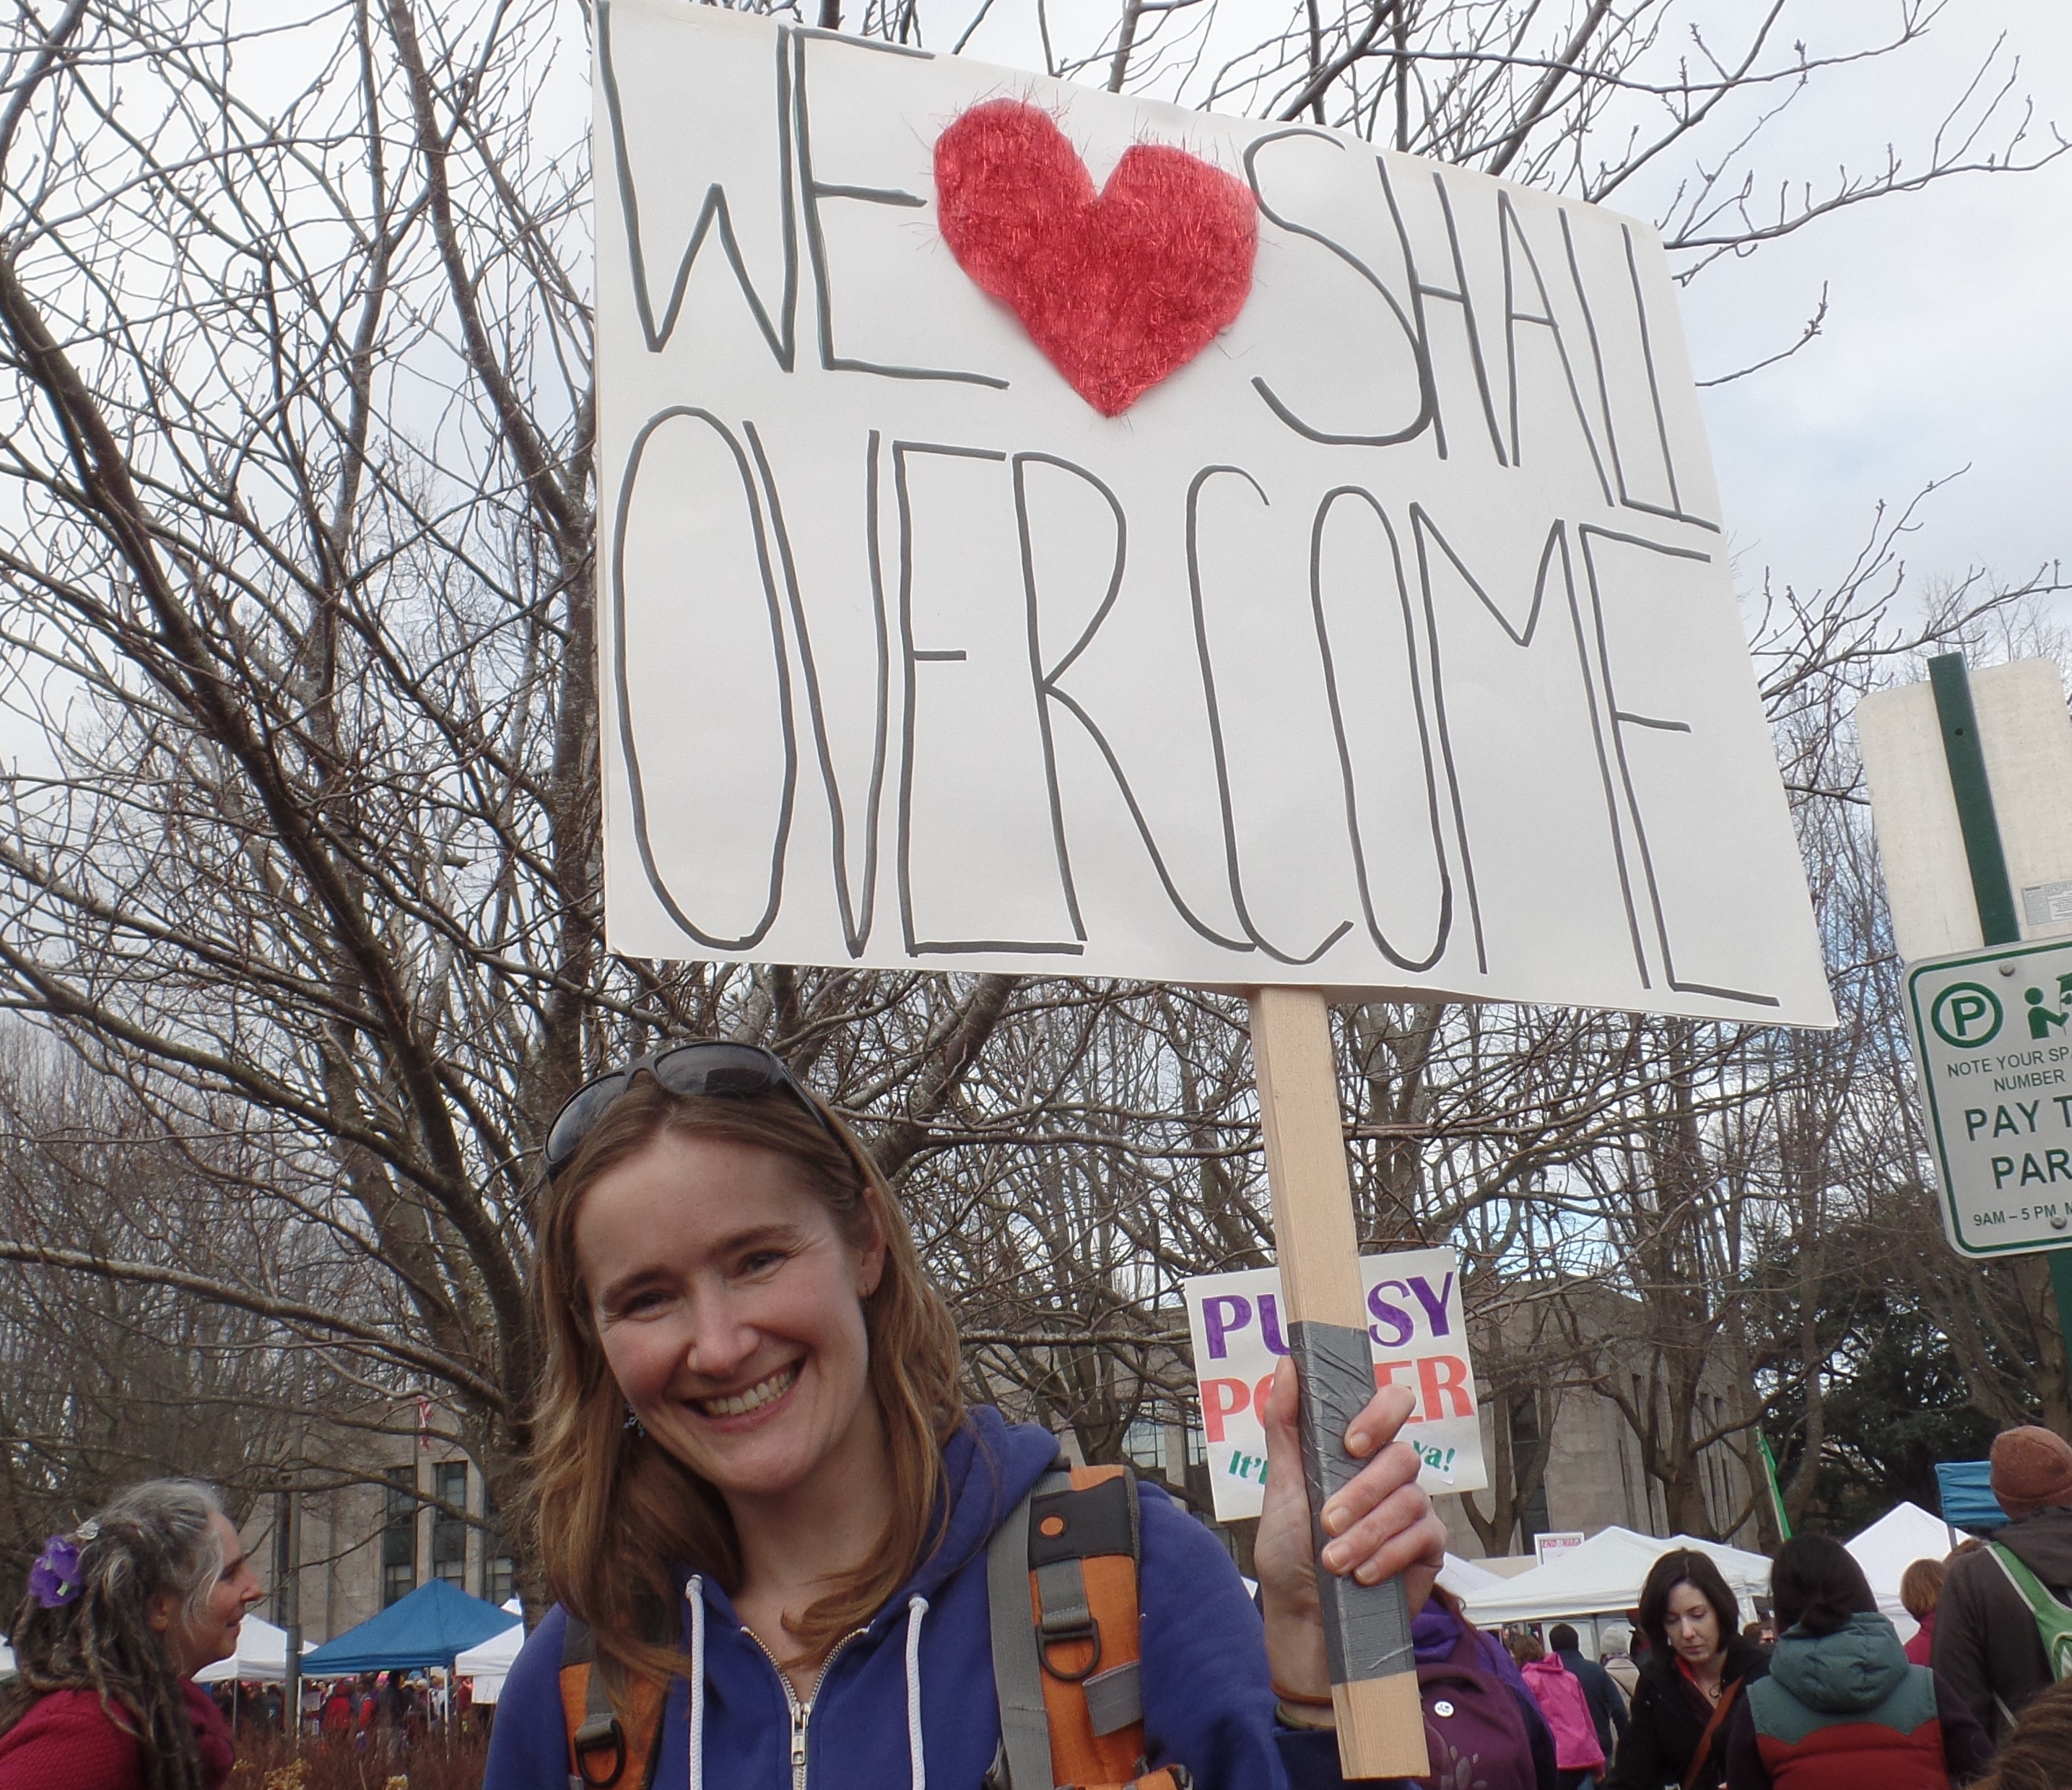 WE SHALL
OVERCOME
PU SY
PO ER
It' ya!
P
NOTE YOUR
NUMBER
PAY
9AM – 5 PM